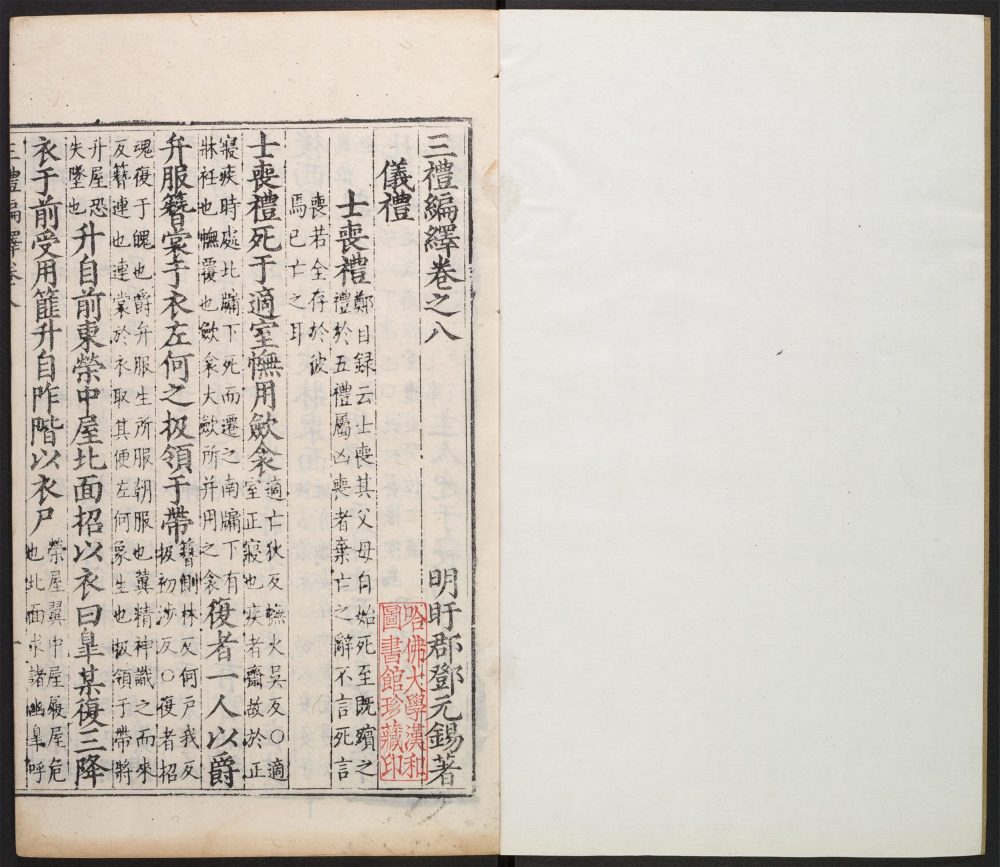 三禮編繹卷之八
明盱郡鄧元錫著
哈佛大學漢和
圖書館珍藏印
儀禮
士喪禮
鄭目録云士喪其父母自始死至既殯之
禮於五禮屬凶喪者棄亡之辭不言死言
喪若全存於彼
焉已亡之耳
士喪禮死于適室幠用斂衾
適亡狄反幠火吳反○適
室正寢也疾者齋故於正
寢疾時處北牖下死而遷之南牖下有
牀衽也幠覆也斂衾大斂所并用之衾
復者一人以爵
弁服簪裳于衣左何之扱領于帶
簪側林反何戶我反
扱初涉反○復者招
魂復于魄也爵弁服生所服朝服也冀精神識之而來
反簪連也連裳於衣取其便左何象生也扱領于帶將
升屋恐
失墜也
升自前東榮中屋北面招以衣曰皐某復三降
衣于前受用篚升自阼階以衣尸
榮屋翼中屋履屋危
也北面求諸幽皐呼
三禮編繹卷八
一